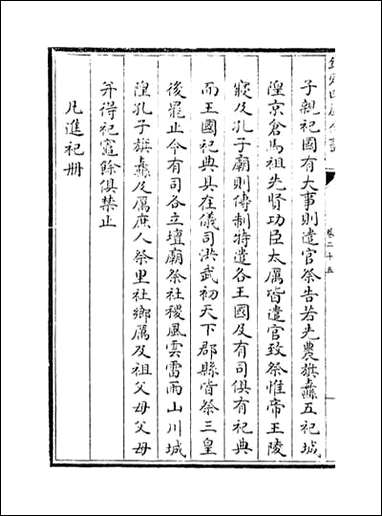 欽定四庫全書
卷二十五
子親祀國有大事則遣官祭告若先農旗纛五祀城
隍京倉馬祖先賢功臣太厲皆遣官致祭惟帝王陵
寢及孔子廟則傳制特遣各王國及有司俱有祀典
而王國祀典具在儀司洪武初天下郡縣皆祭三皇
後罷止令有司各立壇廟祭社稷風雲雷雨山川城
隍孔子旗纛及厲庶人祭里社鄉厲及祖父母父母
并得祀竈餘俱禁止
凡進祀册